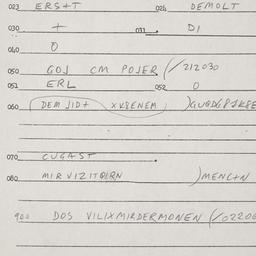 023 ERS+T 024 DEMOLT
030 + 031 DI
040 0
050 GOJ CM POJER (/212030
051 ERL 052 0
060 DEM JID+ XV8ENEM
070 CUGAST
080 MIR VIZIT )MENC+N
900 DOS VILIXMIRDERMONEN (/02206